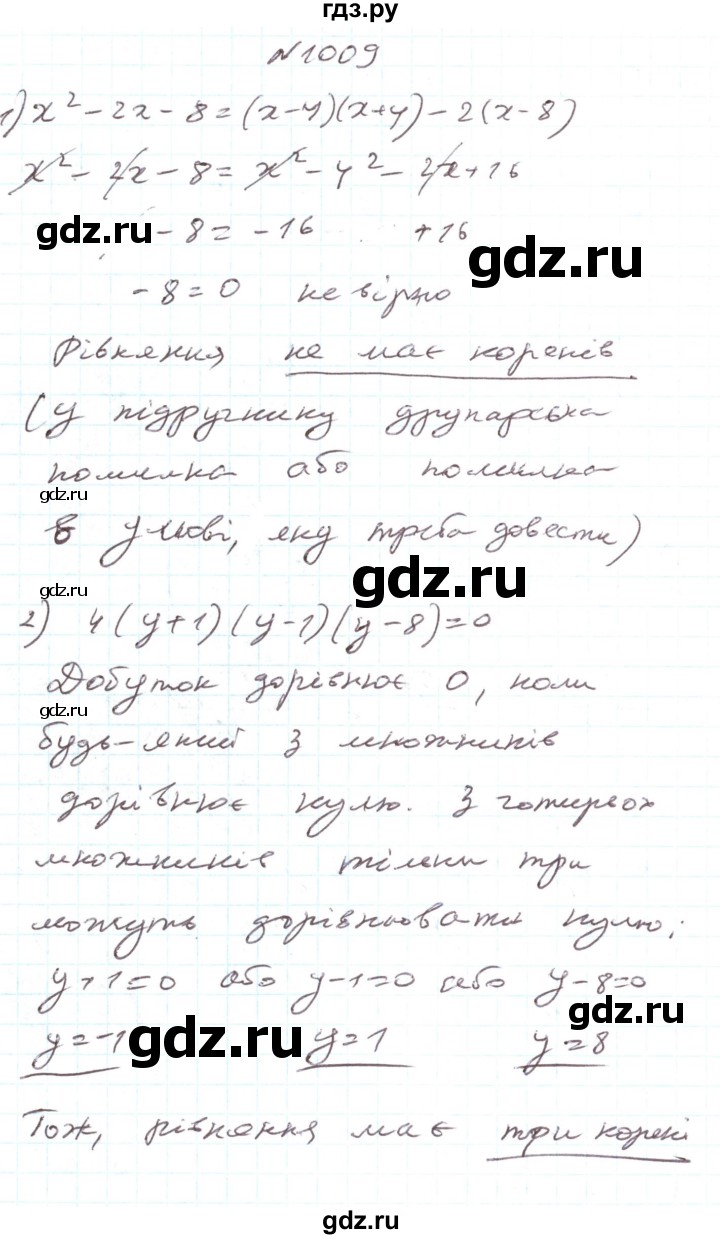 гдз.ру
№1009
1) x² - 2x - 8 = (x-4)(x+4) - 2(x-8)
x² - 2x - 8 = x² - 4² - 2x + 16
gdz.ru - 8 = -16 +16
gdz.ru
- 8 = 0 не вірно
Рівняння не має коренів
(у підручнику друкарська
помилка або помилка
gdz.ru
в умові, яку треба довести)
gdz.ru
gdz.ru
2) 4(y+1)(y-1)(y-8)=0
Добуток дорівнює 0, коли
gdz.ru
будь-який з множників
дорівнює нулю. З чотирьох
множників тільки три
можуть дорівнювати нулю:
y+1=0 або y-1=0 або y-8=0
gdz.ru
y=-1 gdz.ru y=1 y=8
Тож, рівняння має три корені
gdz.ru